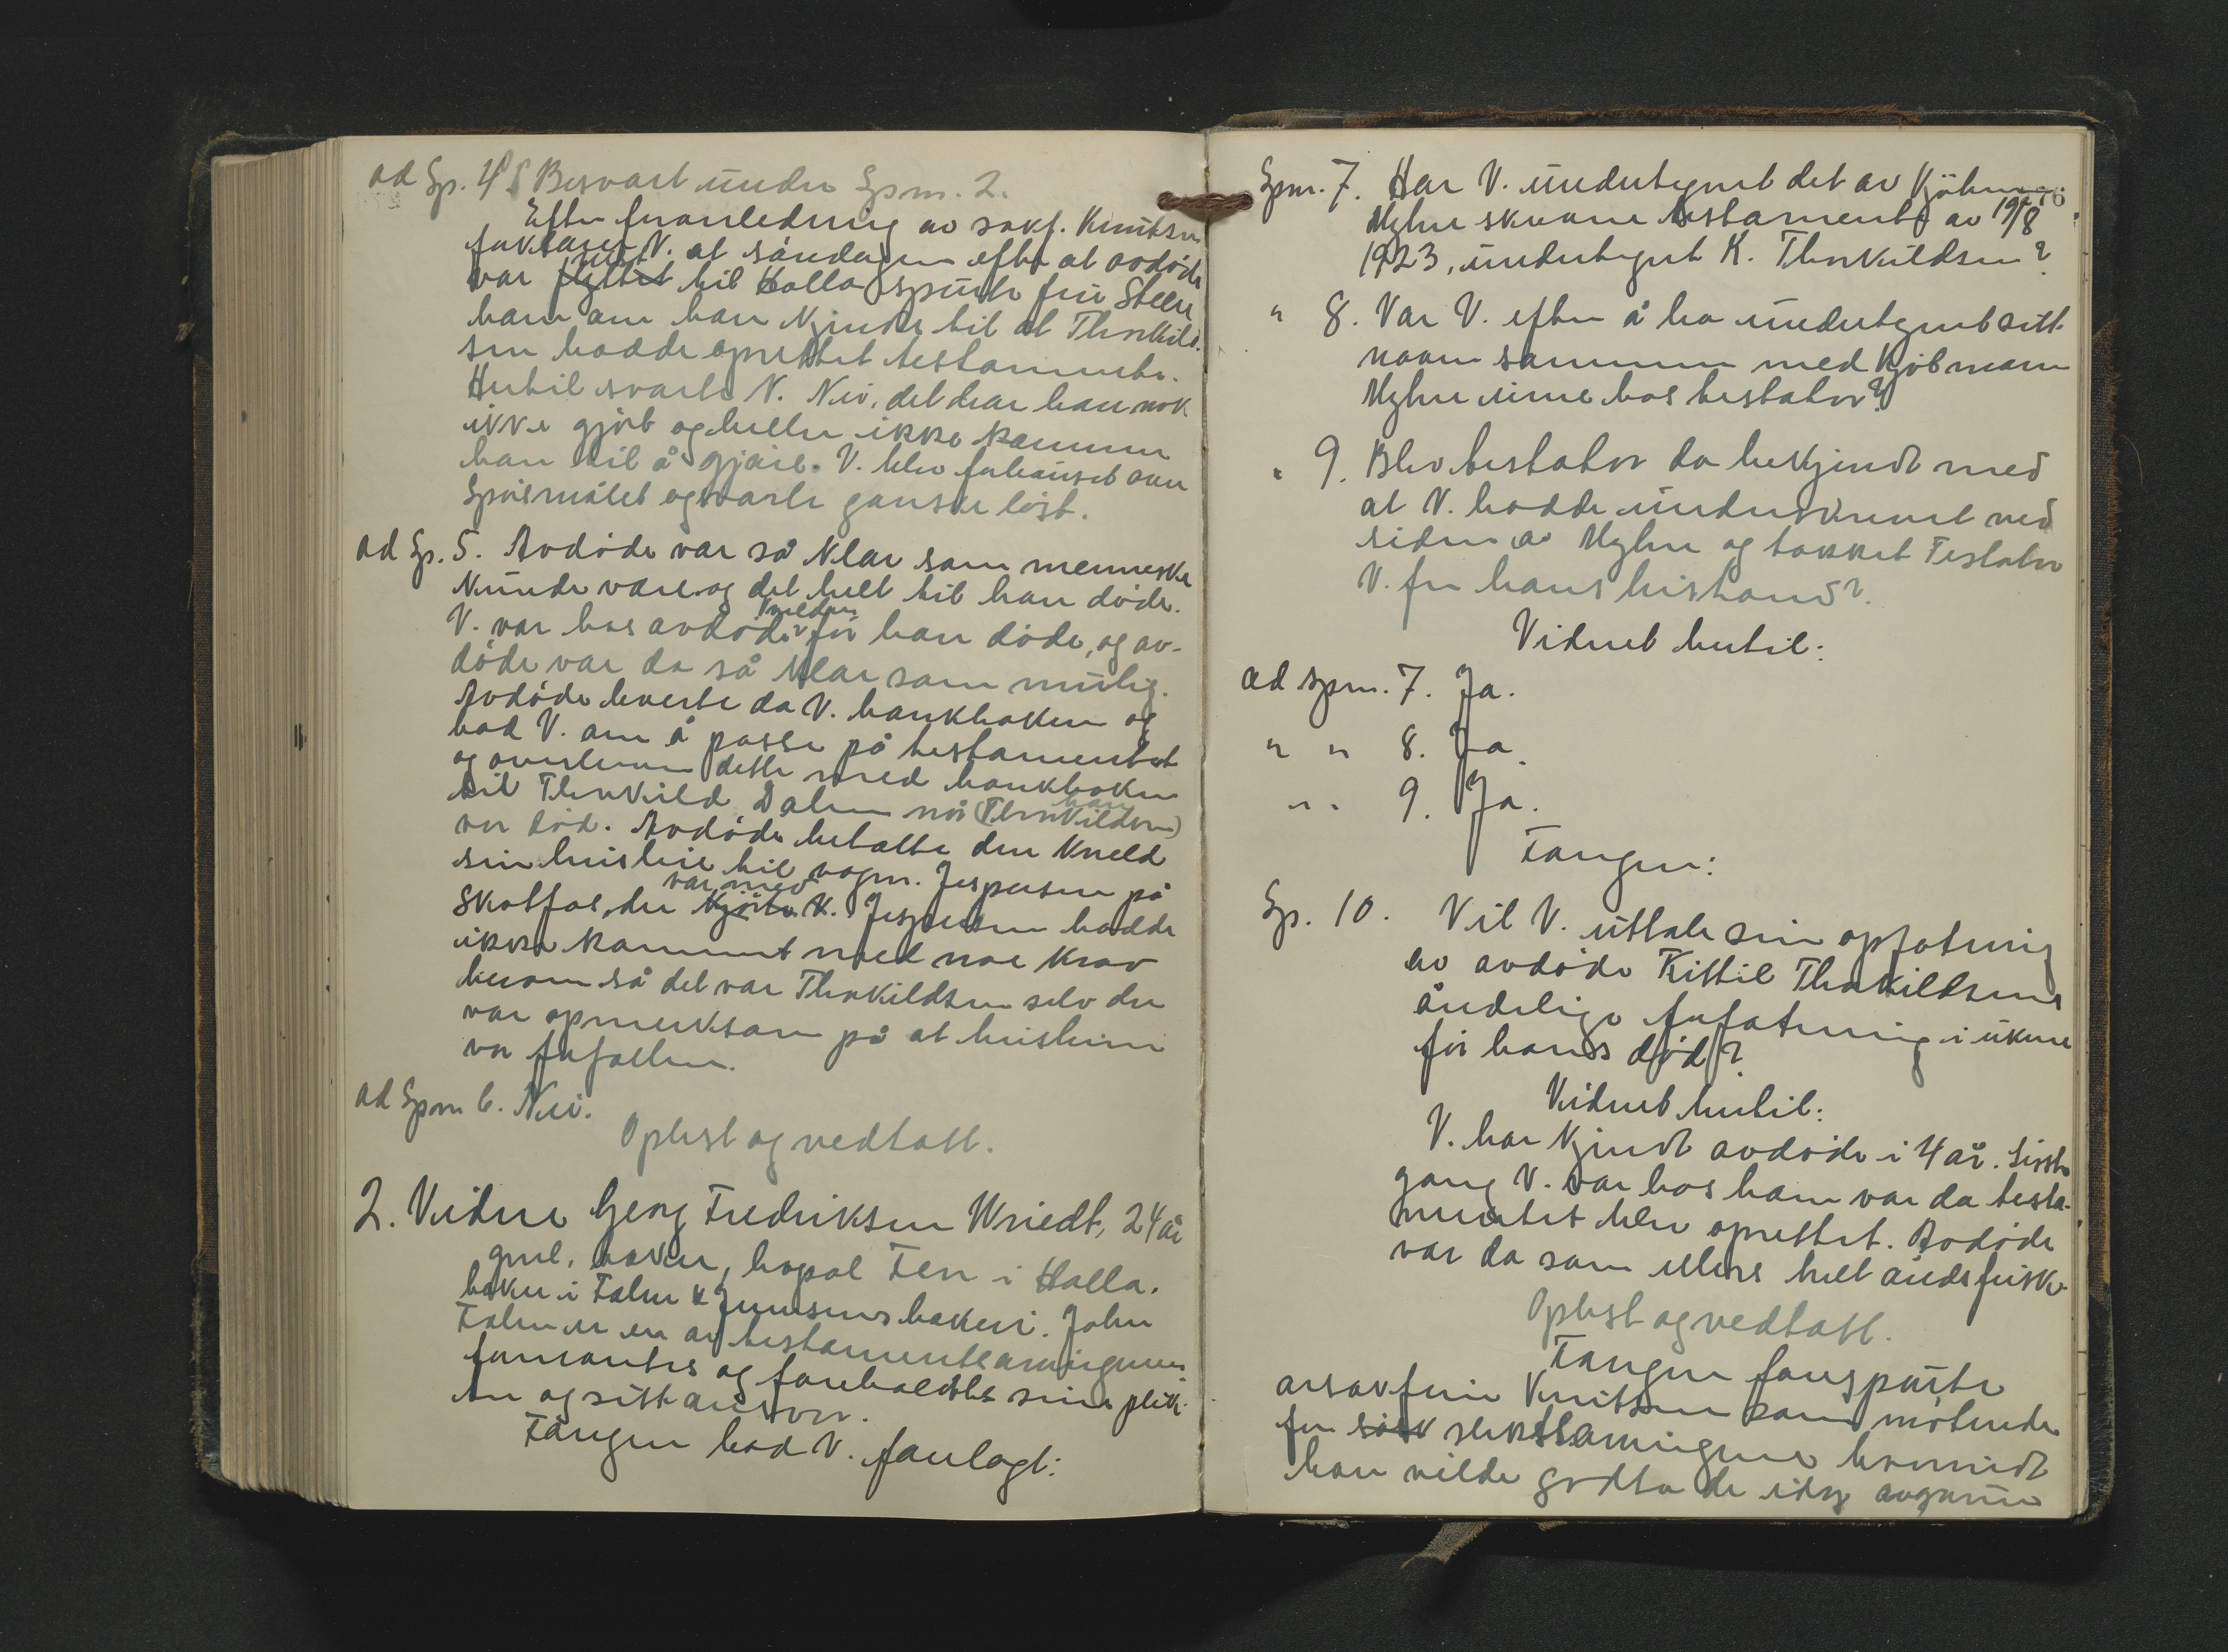 ad Sp. 4. Besvart under Spm. 2.
Efter foranledning av sakf. Knutsen
forklarer V. at söndagen efter at avdöde
var flyttet reist til Holla spurte fru Steen
ham om han kjendte til at Thorkild-
sen hadde oprettet testamente.
Hertil svarte V. Nei, det har han nok
ikke gjort og heller ikke kommer
han til å gjöre. V. blev forbauset over
Spörsmålet og svarte ganske löst.
ad Sp. 5. Avdöde var så klar som menneske
kunde være og det helt til han döde.
V. var hos avdöde kvelden för han döde, og av-
döde var da så klar som mulig.
Avdöde leverte da V. bankboken og
bad V. om å passe på testamentet
og overlevere dette med bankboken
til Thorkild Dalen når han (Thorkildsen)
var död. Avdöde betalte den kveld
sin husleie til vogm. Jespersen på
Skotfos, der kjörte var med V. Jespersen hadde
ikke kommet med noe krav
herom så det var Thorkildsen selv der
var opmerksom på at husleien
var forfallen.
ad Spm 6. Nei.
Oplest og vedtatt.
2. Vidne Georg Fredriksen Wriedt, 24 år
gml, baker, bopæl Fen i Holla.
baker i Falm & Jennsens bakeri. John
er en av testamentsarvingene
formantes og foreholdtes sine plik-
ter og sitt ansvar.
Tangen bad V. forelagt:
Spm. 7. Har V. undertegnet det av Kjöbm
Myhre skrevne testament av 19/8
1923, undertegnet K. Thorkildsen?
" 8. Var V. efter å ha undertegnet sitt
navn sammen med Kjöbmann
Myhre inne hos testator?
" 9. Blev testator da bekjendt med
at V. hadde underskrevet ved
siden av Myhre og takket Testator
V. for hans bistand?
Vidnet hertil:
ad spm. 7. Ja.
" " 8. Ja.
" " 9. Ja.
Tangen:
Sp. 10. Vil V. uttale sin opfatning
av avdöde Kittil Thorkildsens
åndelige forfatning i ukene
för hans död?
Vidnet hertil:
V. har kjendt avdöde i 4 år. Siste
gang V. var hos ham var da testa-
mentet blev oprettet. Avdöde
var da som ellers helt åndsfrisk.
Oplest og vedtatt.
Tangen forespurte
o.r.sakförer Knutsen som mötende
for slektsarvingene hvorvidt
han vilde godta de idag avgivne